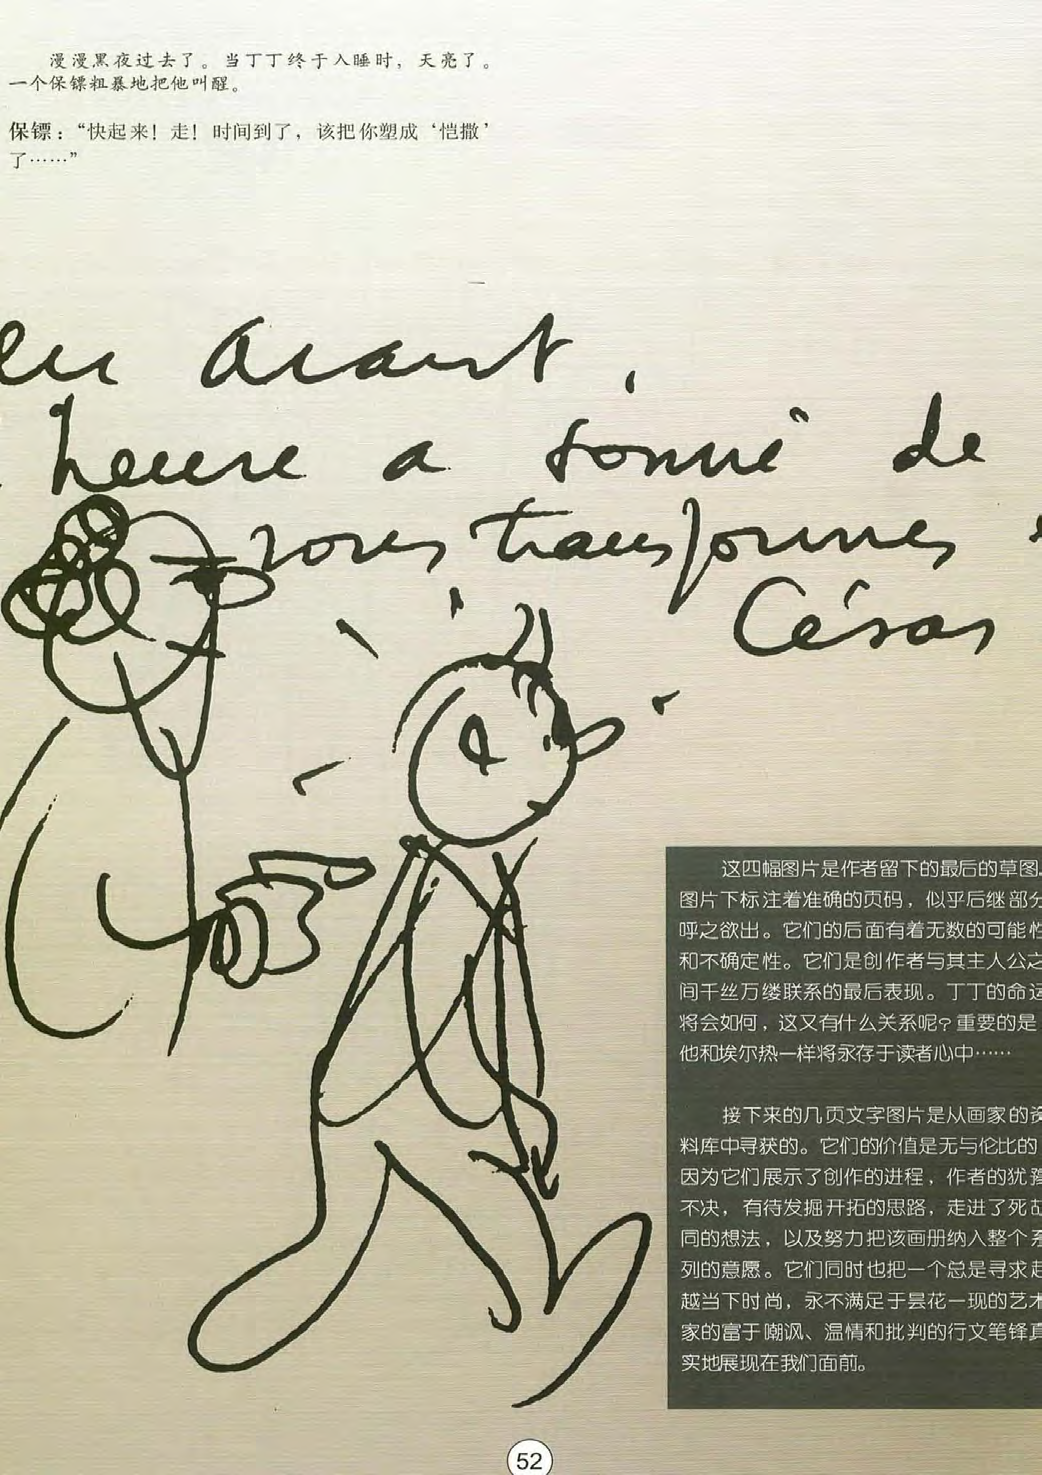 漫漫黑夜过去了。当丁丁终于入睡时，天亮了。
一个保镖粗暴地把他叫醒。
保镖：“快起来！走！时间到了，该把你塑成‘恺撒’
了……”
en avant,
heure a sonné de
vous transformer
César
这四幅图片是作者留下的最后的草图。
图片下标注着准确的页码，似乎后继部分
呼之欲出。它们的后面有着无数的可能性
和不确定性。它们是创作者与其主人公之
间千丝万缕联系的最后表现。丁丁的命运
将会如何，这又有什么关系呢？重要的是
他和埃尔热一样将永存于读者心中……
接下来的几页文字图片是从画家的资
料库中寻获的。它们的价值是无与伦比的
因为它们展示了创作的进程，作者的犹豫
不决，有待发掘开拓的思路，走进了死胡
同的想法，以及努力把该画册纳入整个系
列的意愿。它们同时也把一个总是寻求超
越当下时尚，永不满足于昙花一现的艺术
家的富于嘲讽、温情和批判的行文笔锋真
实地展现在我们面前。
52